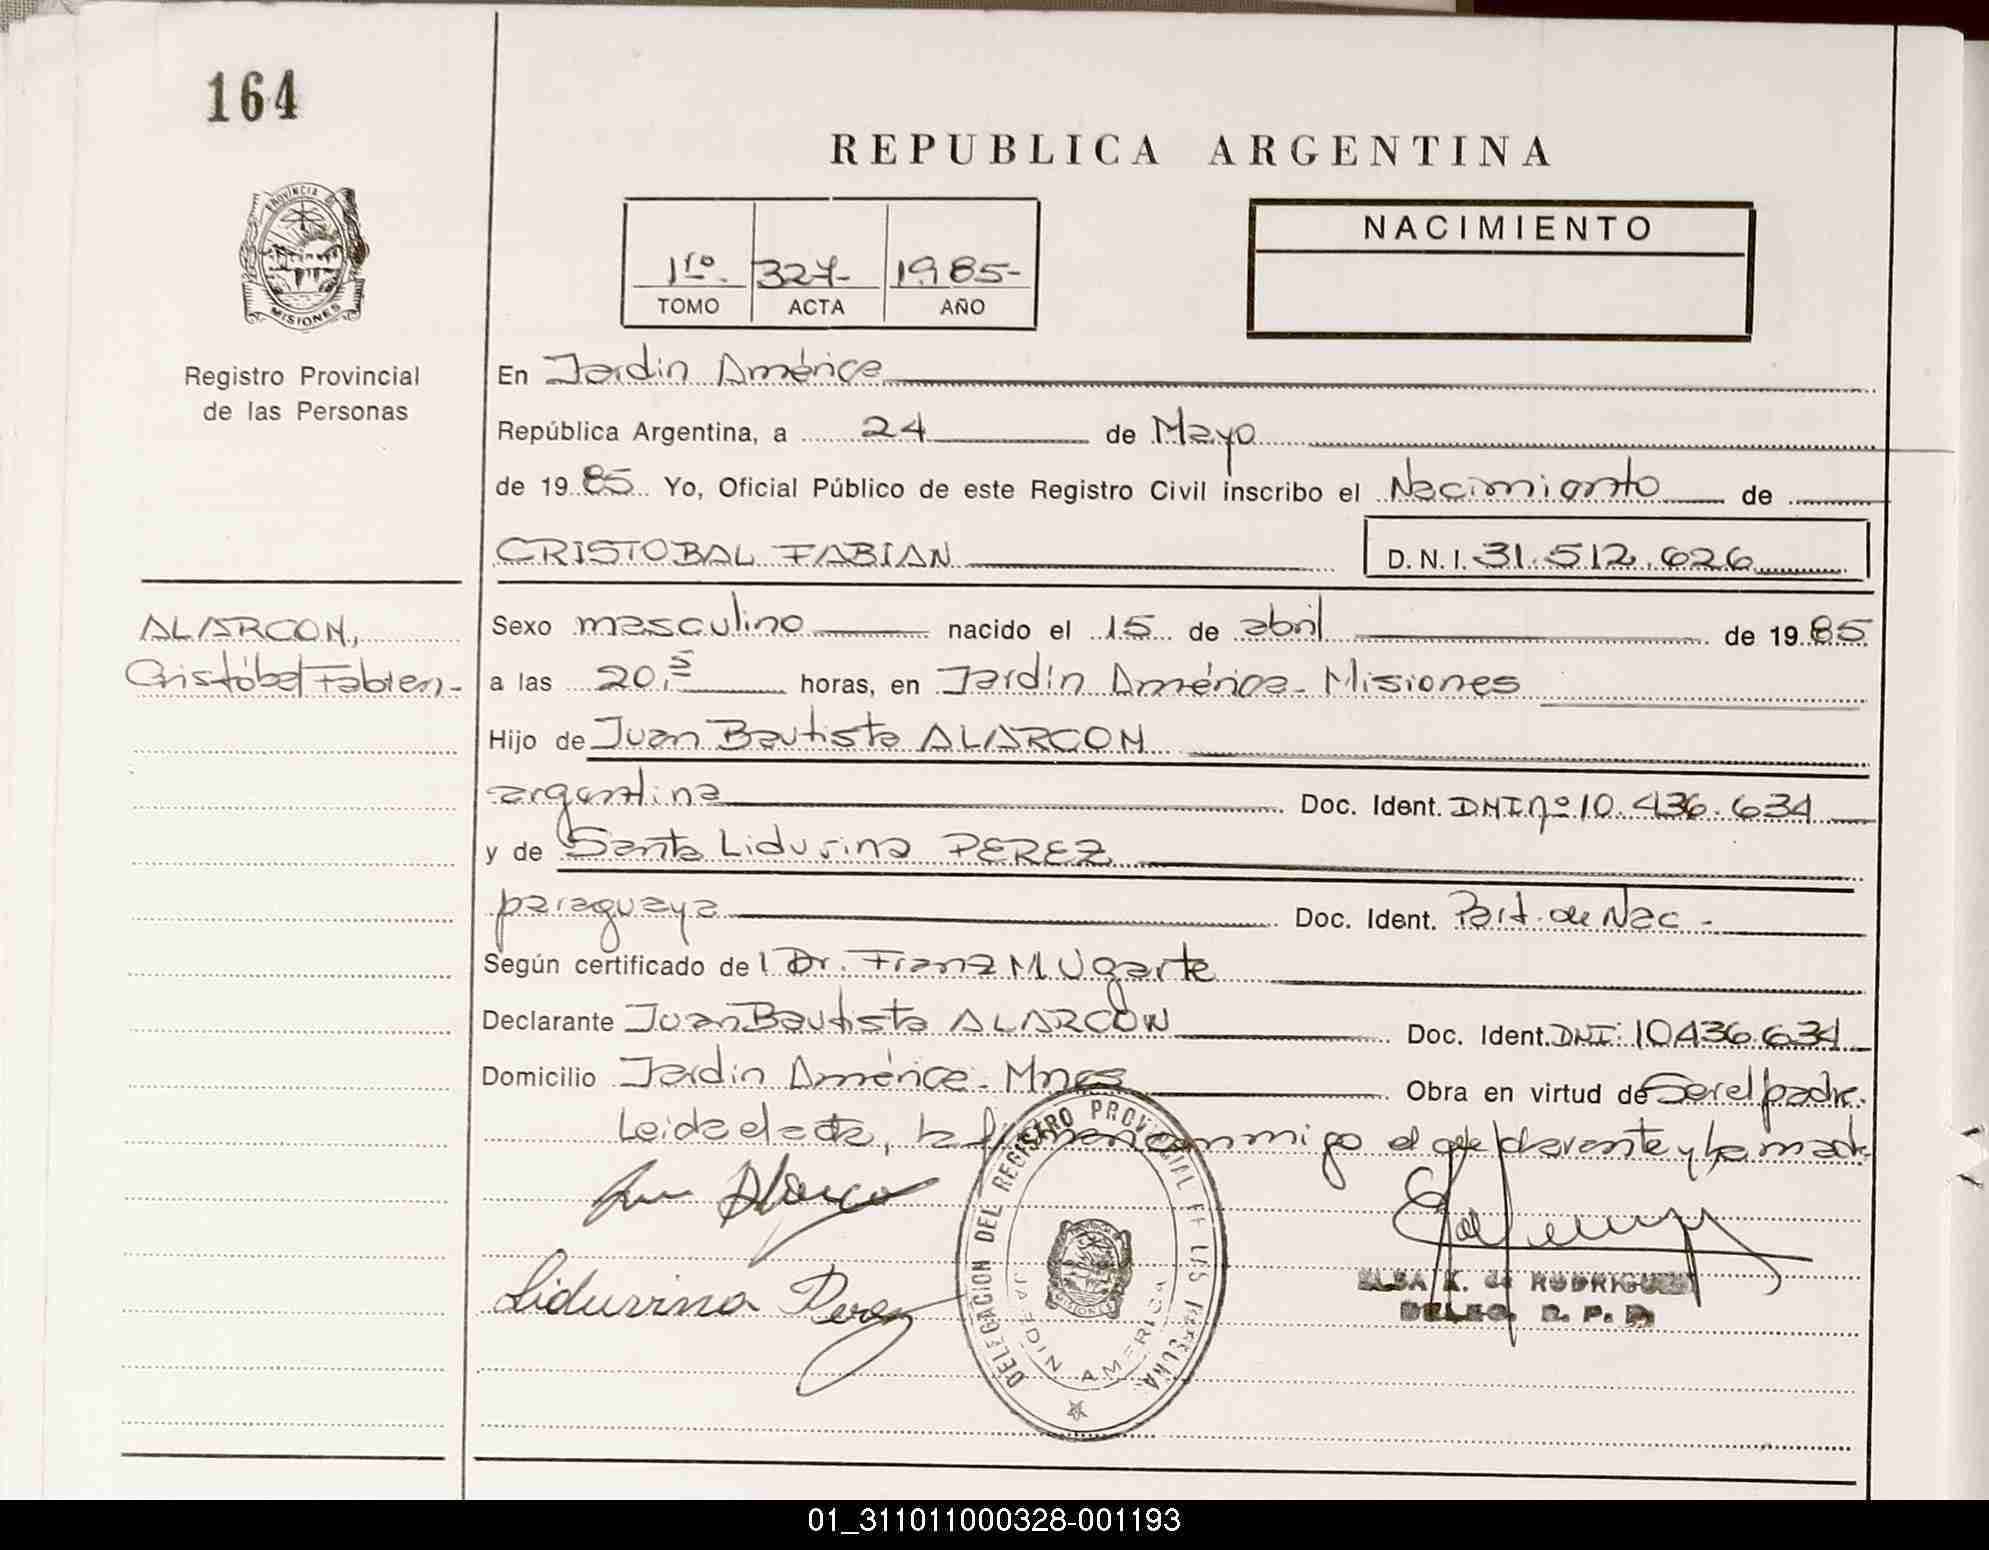 164
REPUBLICA ARGENTINA
PROVINCIA DE
MISIONES
Registro Provincial
de las Personas
1ro. 327- 1985-
TOMO ACTA AÑO
NACIMIENTO
En Jardin América
República Argentina, a 24 de Mayo
de 1985 Yo, Oficial Público de este Registro Civil inscribo el Nacimiento de
CRISTOBAL FABIAN D.N.I. 31.512.626
ALARCON,
Cristóbal Fabian-
Sexo masculino nacido el 15 de abril de 1985
a las 20,5 horas, en Jardín América- Misiones
Hijo de Juan Bautista ALARCON
argentina Doc. Ident. DNI nº 10.436.634
y de Santa Lidurina PEREZ
paraguaya Doc. Ident. Part. de Nac-
Según certificado del Dr. Franz M Ugarte
Declarante Juan Bautista ALARCON Doc. Ident. DNI: 10436.634
Domicilio Jardin América- Mnes Obra en virtud de Ser el padre.
Leida el acta, la firman conmigo el declarante y la madre
Lidurina Perez
DELEGACION DEL REGISTRO PROVINCIAL DE LAS PERSONAS
JARDIN AMERICA
MISIONES
ELSA K. de RODRIGUEZ
DELEG. R. P. P.
01_311011000328-001193